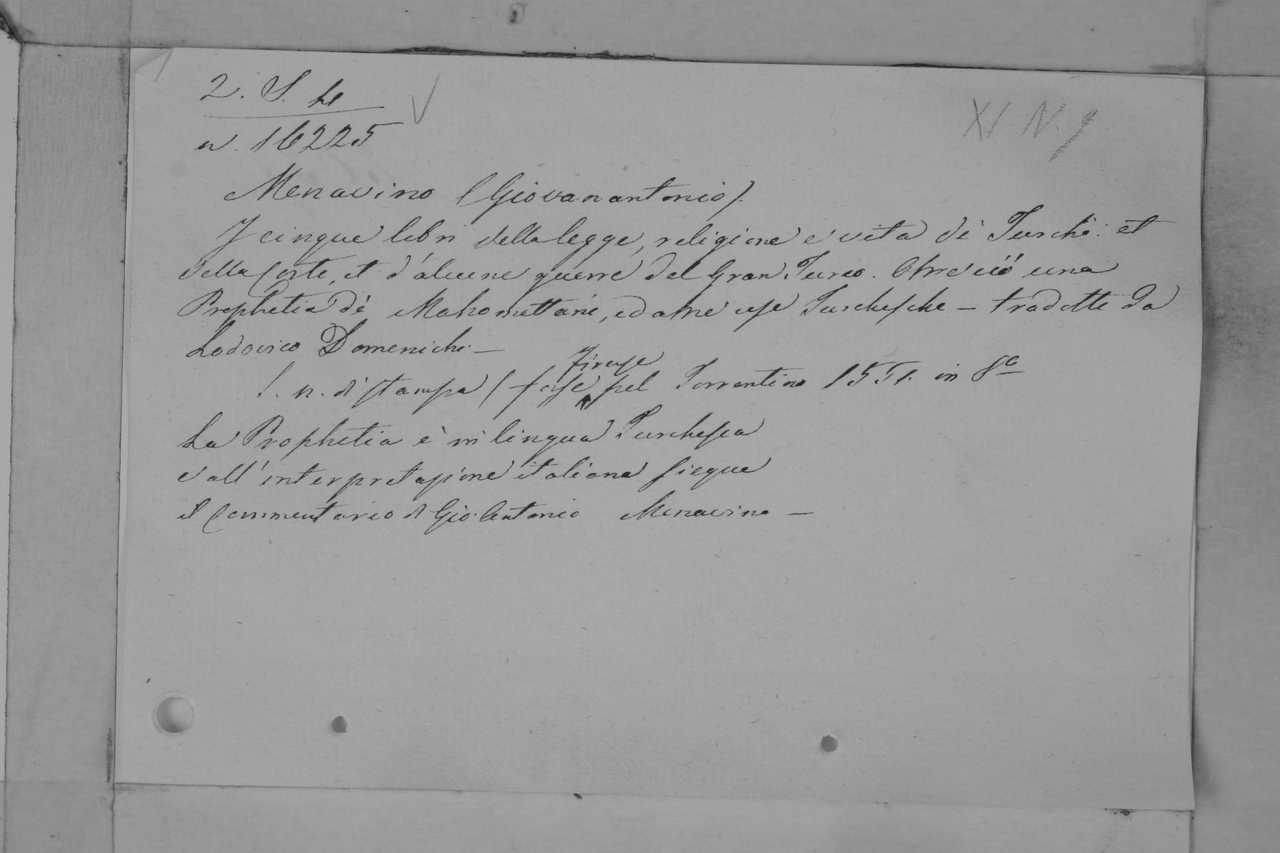 2. S.
n. 16225
XV N. 9
Menavino (Giovanantonio).
I cinque libri della legge, religione e vita dè Turchi: et
della Corte, et d'alcune guerre del Gran Turco. Oltre ciò una
Prophetia dè Mahomettani, ed altre cose Turchesche — tradotte da
Lodovico Domenichi —
S. n. di stampa (forse Firenze pel Torrentino 1551. in 8º
La Prophetia è in lingua Turchesca
e all'interpretazione italiana siegue
il Commentario di Gio: Antonio Menavino —